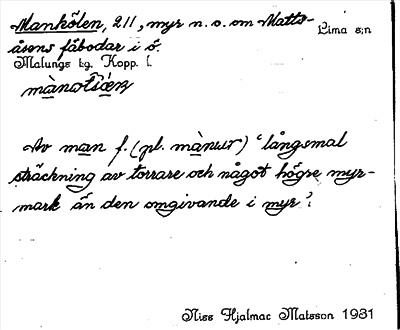 Mankölen, 211, myr n. o. om Matts- Lima s:n
åsens fäbodar i ö.
Malungs tg. Kopp. l.
Av man f. (pl. mànur) 'långsmal
sträckning av torrare och något högre myr-
mark än den omgivande i myr'.
Niss Hjalmar Matsson 1931